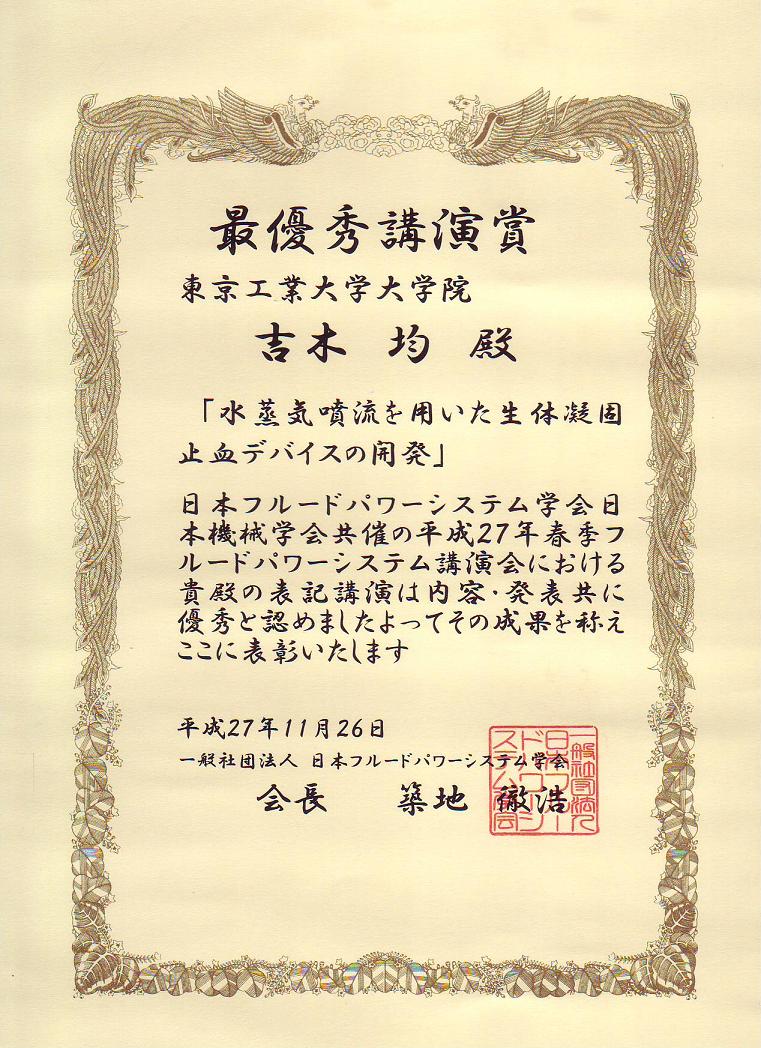 最優秀講演賞
東京工業大学大学院
吉木 均 殿
「水蒸気噴流を用いた生体凝固
止血デバイスの開発」
日本フルードパワーシステム学会日
本機械学会共催の平成27年春季フ
ルードパワーシステム講演会における
貴殿の表記講演は内容・発表共に
優秀と認めましたよってその成果を称え
ここに表彰いたします
平成27年11月26日
一般社団法人 日本フルードパワーシステム学会
会長 築地 徹浩